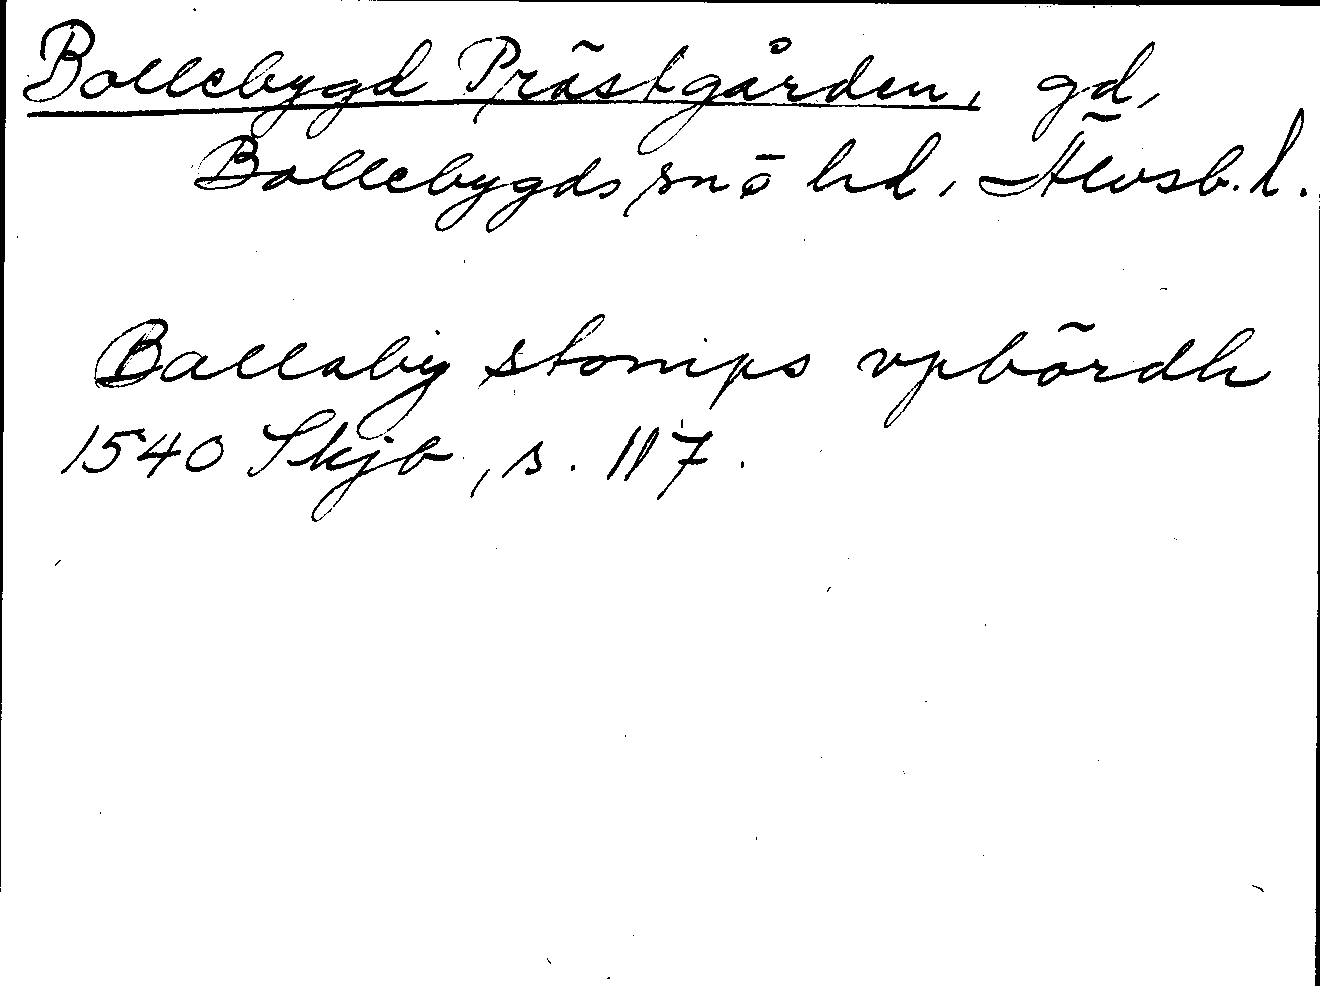 Bollebygd Prästgården, gd,
Bollebygds sn ō hd, Älvsb. l.
Ballaby stomps vpbördh
1540 Skjb, s. 117.